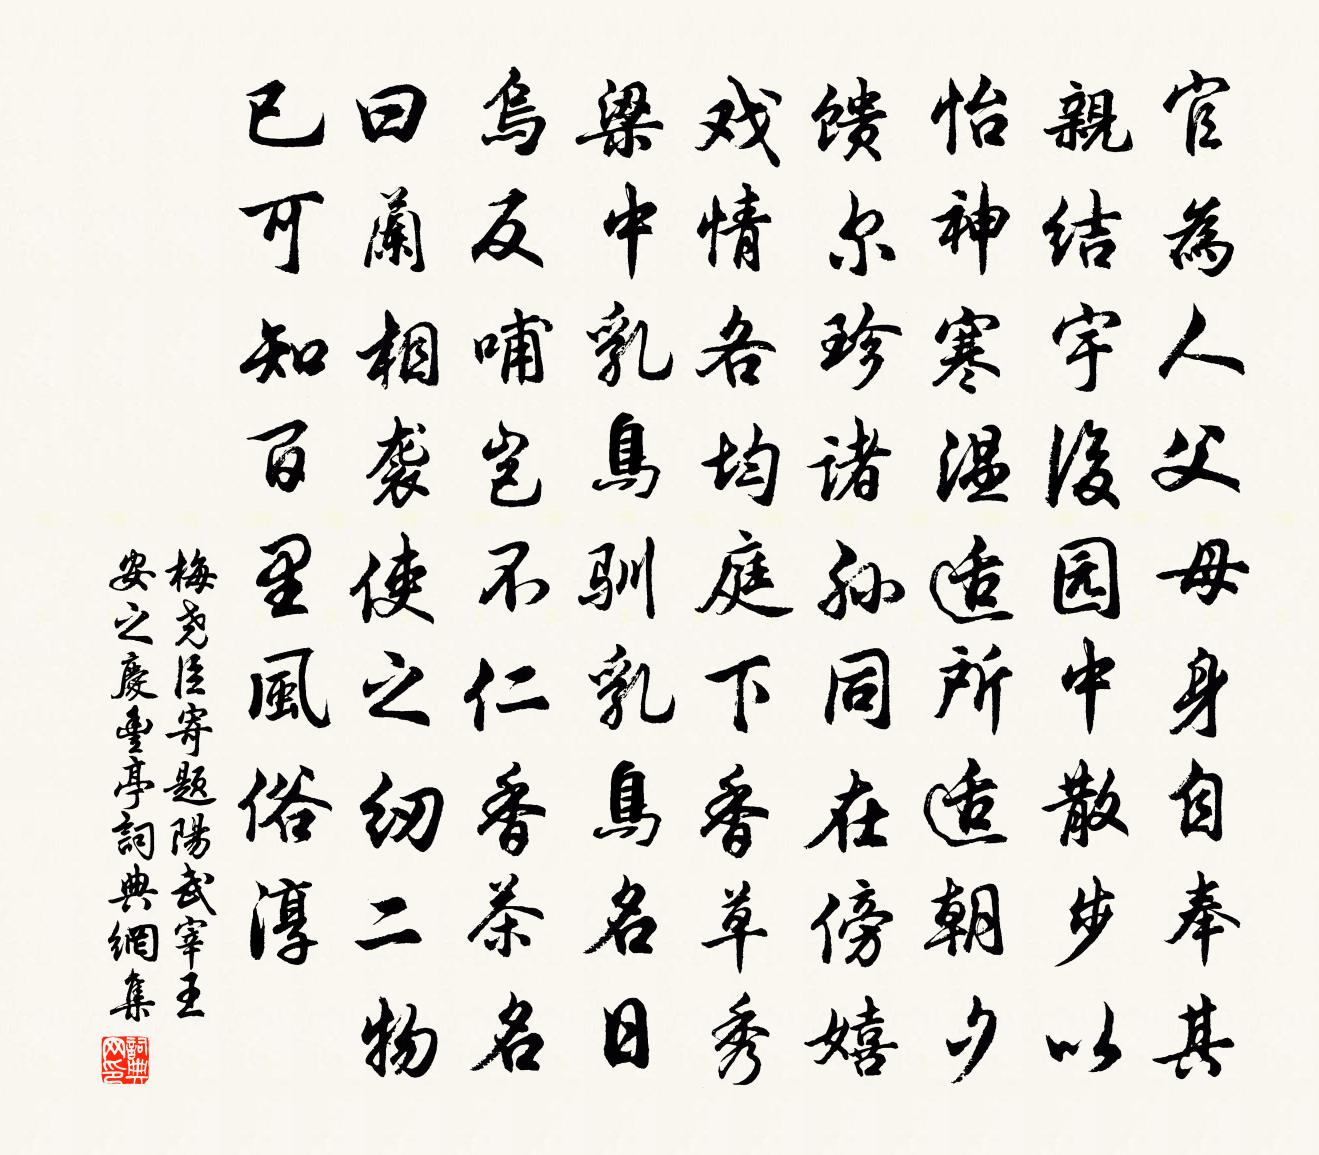 官為人父母身自奉其
親結宇後园中散步以
怡神寒温适所适朝夕
馈尔珍诸孙同在傍嬉
戏情各均庭下香草秀
梁中乳鳥馴乳鳥名曰
烏反哺岂不仁香茶名
曰蘭相袭使之纫二物
已可知百里風俗淳
梅尧臣寄題陽武宰王
安之慶豐亭詞典網集
詞典网印